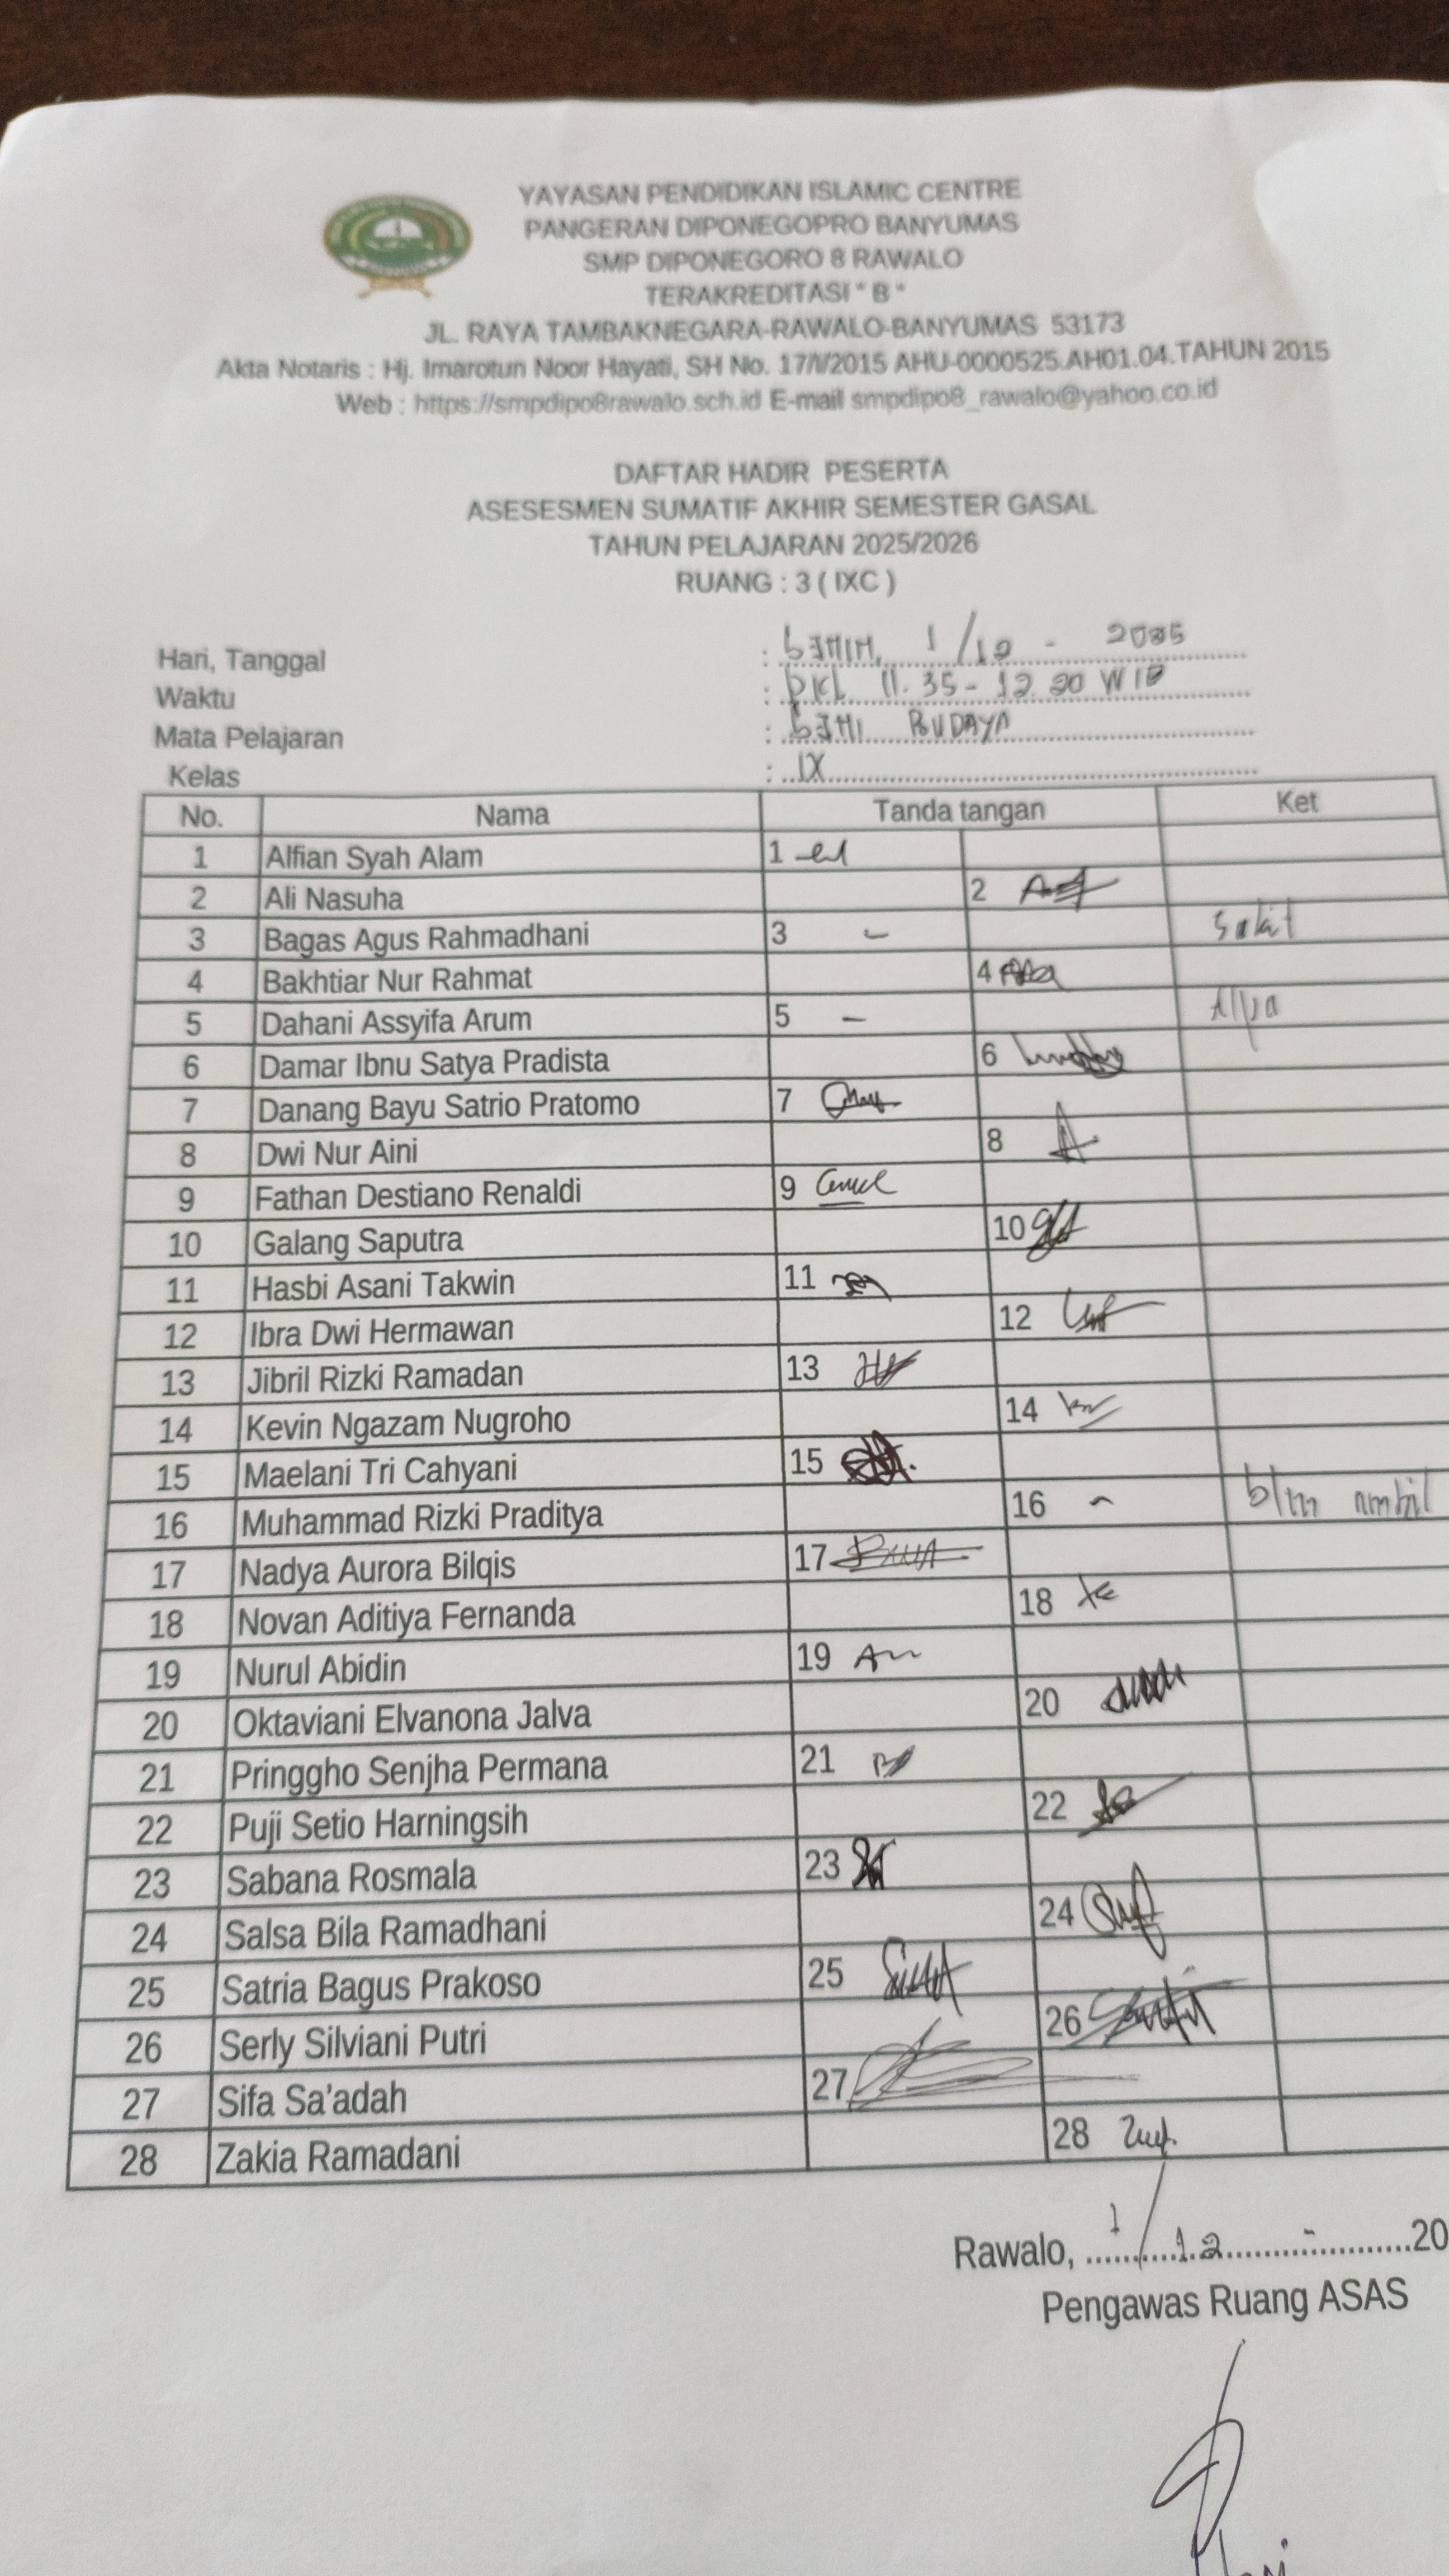 YAYASAN PENDIDIKAN ISLAMIC CENTRE
PANGERAN DIPONEGOPRO BANYUMAS
SMP DIPONEGORO 8 RAWALO
TERAKREDITASI " B "
JL. RAYA TAMBAKNEGARA-RAWALO-BANYUMAS 53173
Akta Notaris : Hj. Imarotun Noor Hayati, SH No. 17/I/2015 AHU-0000525.AH01.04.TAHUN 2015
Web : https://smpdipo8rawalo.sch.id E-mail smpdipo8_rawalo@yahoo.co.id
DAFTAR HADIR PESERTA
ASESESMEN SUMATIF AKHIR SEMESTER GASAL
TAHUN PELAJARAN 2025/2026
RUANG : 3 ( IXC )
Hari, Tanggal : SENIN, 1/12 - 2025
Waktu : PKL 11.35 - 12.20 WIB
Mata Pelajaran : SENI BUDAYA
Kelas : IX
No. Nama Tanda tangan Ket
1 Alfian Syah Alam 1
2 Ali Nasuha 2
3 Bagas Agus Rahmadhani 3 - Sakit
4 Bakhtiar Nur Rahmat 4
5 Dahani Assyifa Arum 5 - Alpa
6 Damar Ibnu Satya Pradista 6
7 Danang Bayu Satrio Pratomo 7
8 Dwi Nur Aini 8
9 Fathan Destiano Renaldi 9
10 Galang Saputra 10
11 Hasbi Asani Takwin 11
12 Ibra Dwi Hermawan 12
13 Jibril Rizki Ramadan 13
14 Kevin Ngazam Nugroho 14
15 Maelani Tri Cahyani 15
16 Muhammad Rizki Praditya 16 - blm ambil
17 Nadya Aurora Bilqis 17
18 Novan Aditiya Fernanda 18
19 Nurul Abidin 19
20 Oktaviani Elvanona Jalva 20
21 Pringgho Senjha Permana 21
22 Puji Setio Harningsih 22
23 Sabana Rosmala 23
24 Salsa Bila Ramadhani 24
25 Satria Bagus Prakoso 25
26 Serly Silviani Putri 26
27 Sifa Sa'adah 27
28 Zakia Ramadani 28
Rawalo, 1/12 - 20
Pengawas Ruang ASAS